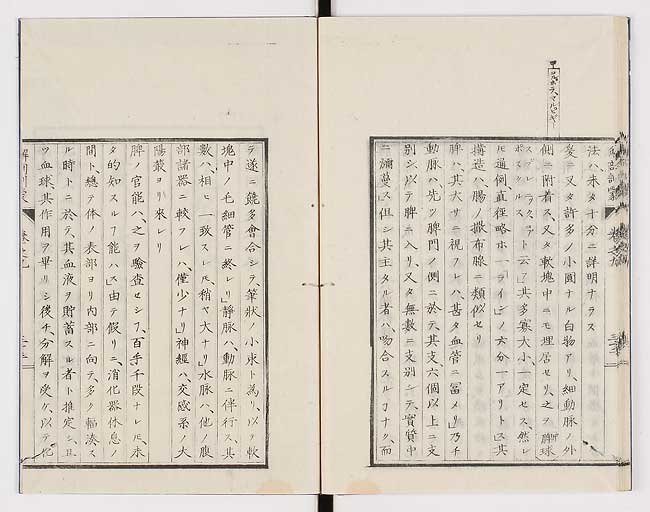 法ハ未タ十分ニ詳明ナラス
爰ニ又タ許多ノ小圓ナル白物アリ、細動脈ノ外
側ニ附着ス、又タ軟塊中ニモ埋居セリ、之ヲ脾球
ト云フ其多寡大小、一定セス、然レ
𪜈通例、直徑略ホ一「ライン」ノ六分一アリトス其
搆造ハ、腸ノ撒布腺ニ類似セリ
脾ハ、其大サニ視フレハ、甚タ血管ニ冨メリ」乃チ
動脈ハ、先ツ脾門ノ側ニ於テ、其支、六個以上ニ支
別シ、以テ脾ニ入リ、又タ無數ニ支別シテ、實質中
ニ瀰蔓ス」但シ其主タル者ハ、吻合スルナク、而
テ遂ニ饒多會合シテ筆狀ノ小束ト為リ、以テ軟
塊中ノ毛細管ニ終レリ」靜脈ハ、動脈ニ伴行ス、其
數ハ、相ヒ一致スレ𪜈、稍ヤ大ナリ」水脈ハ、他ノ腹
部諸器ニ較フレハ、僅少ナリ」神經ハ、交感系ノ大
陽叢ヨリ來レリ
脾ノ官能ハ、之ヲ驗査セシニ、百手千段ナレ𪜈、未
タ的知スルフ能ハス」由テ假リニ、消化器休息ノ
間ト、總テ体ノ表部ヨリ内部ニ向テ、多ク輻湊ス
ル時トニ於テ、其血液ヲ貯蓄スル者ト推定シ、且
ツ血球、其作用ヲ畢リシ後チ、分解ヲ受ケ、以テ化